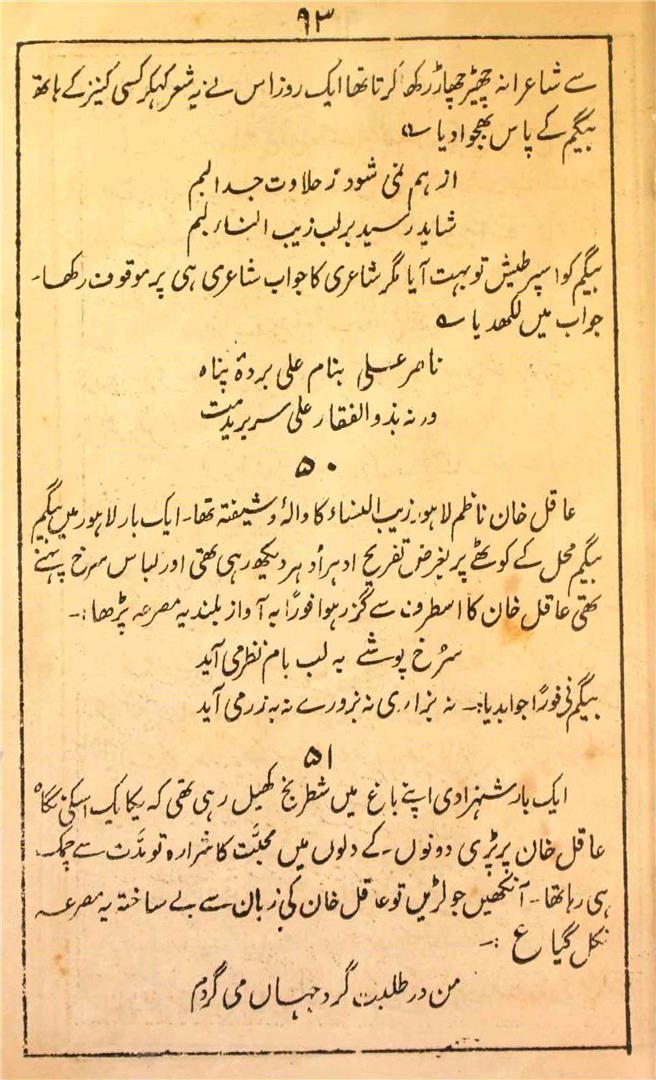 ۹۳
سے شاعرانہ چھیڑ چھاڑ رکھا کرتا تھا ایک روز اس نے یہ شعر کہکر کسی کنیز کے ہاتھ
بیگم کے پاس بھجوا دیا ؎
از ہم نمی شود ز حلاوت جدا لبم
شاید رسید بر لب زیب النساء لبم
بیگم کو اسپر طیش تو بہت آیا مگر شاعری کا جواب شاعری ہی پر موقوف رکھا۔
جواب میں لکھدیا ؎
ناصر علی بنام علی بردۂ پناہ
ورنہ بذوالفقار علی سر بریدمت
۵۰
عاقل خان ناظم لاہور زیب النساء کا والہ و شیفتہ تھا۔ ایک بار لاہور میں بیگم
بیگم محل کے کوٹھے پر بغرض تفریح ادہر اُدہر دیکھ رہی تھی اور لباس سرخ پہنے
تھی عاقل خان کا اسطرف سے گزر ہوا فوراً بہ آواز بلند یہ مصرعہ پڑھا:۔
سُرخ پوشے بہ لب بام نظر می آید
بیگم نی فوراً جوابدیا:۔ نہ بزاری نہ بزورے نہ بہ زر می آید
۵۱
ایک بار شہزادی اپنے باغ میں شطرنج کھیل رہی تھی کہ یکایک اسکی نگاہ
عاقل خان پر پڑی دونوں۔ کے دلوں میں محبّت کا شرارہ تو مدّت سے چمک
ہی رہا تھا۔ آنکھیں جو لڑیں تو عاقل خان کی زبان سے بے ساختہ یہ مصرعہ
نکل گیا ع :۔
من در طلبت گرد جہاں می گردم